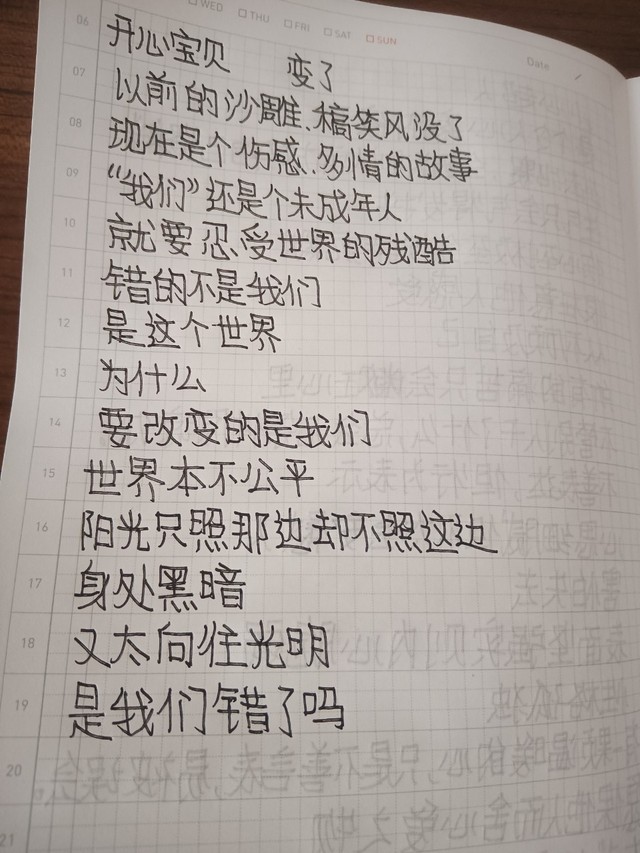 WED THU FRI SAT SUN
Date
06 开心宝贝 变了
07 以前的沙雕、搞笑风没了
08 现在是个伤感、多情的故事
09 “我们”还是个未成年人
10 就要忍受世界的残酷
11 错的不是我们
12 是这个世界
13 为什么
14 要改变的是我们
15 世界本不公平
16 阳光只照那边却不照这边
17 身处黑暗
18 又太向往光明
19 是我们错了吗
20
21